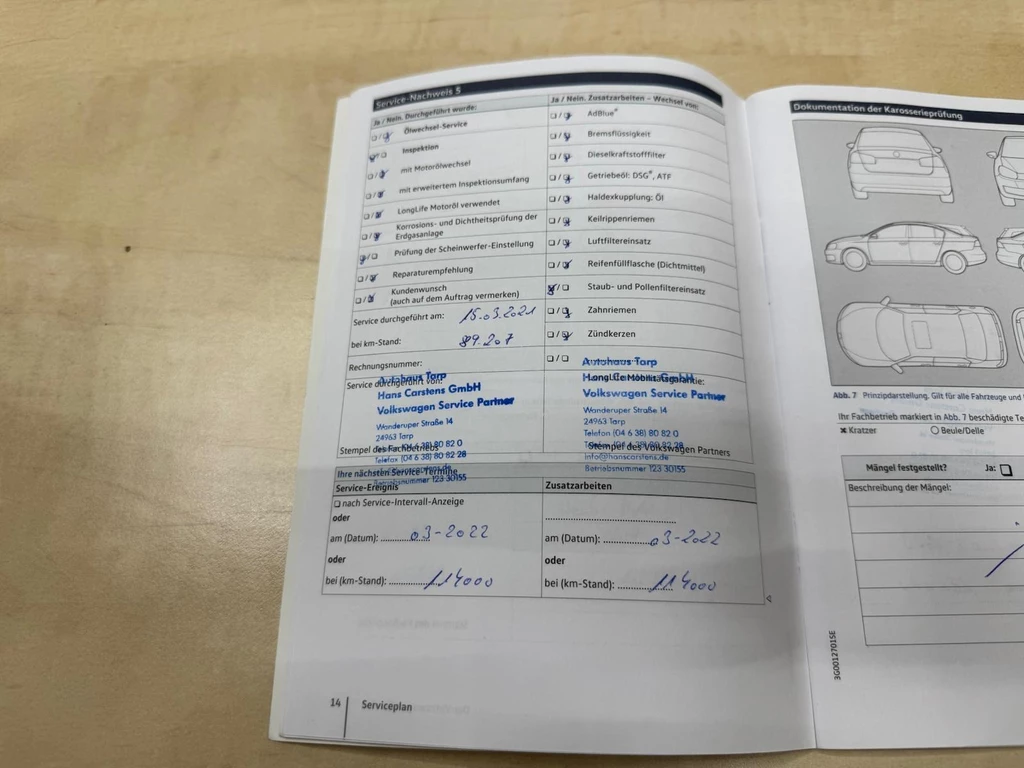 Service-Nachweis 5
Ja / Nein. Durchgeführt wurde:
Ölwechsel-Service
Inspektion
mit Motorölwechsel
mit erweitertem Inspektionsumfang
LongLife Motoröl verwendet
Korrosions- und Dichtheitsprüfung der
Erdgasanlage
Prüfung der Scheinwerfer-Einstellung
Reparaturempfehlung
Kundenwunsch
(auch auf dem Auftrag vermerken)
Service durchgeführt am: 15.03.2021
bei km-Stand: 89.207
Rechnungsnummer:
Service durchgeführt von:
Autohaus Tarp
Hans Carstens GmbH
Volkswagen Service Partner
Wanderuper Straße 14
24963 Tarp
Telefon (04 6 38) 80 82 0
Stempel des Fachbetriebs
Telefax (04 6 38) 80 82 28
Betriebsnummer 123 30155
Ja / Nein. Zusatzarbeiten – Wechsel von:
AdBlue®
Bremsflüssigkeit
Dieselkraftstofffilter
Getriebeöl: DSG®, ATF
Haldexkupplung: Öl
Keilrippenriemen
Luftfiltereinsatz
Reifenfüllflasche (Dichtmittel)
Staub- und Pollenfiltereinsatz
Zahnriemen
Zündkerzen
Autohaus Tarp
LongLife Mobilitätsgarantie:
Hans Carstens GmbH
Volkswagen Service Partner
Wanderuper Straße 14
24963 Tarp
Telefon (04 6 38) 80 82 0
Stempel des Volkswagen Partners
Telefax (04 6 38) 80 82 28
info@hanscarstens.de
Betriebsnummer 123 30155
Ihre nächsten Service-Termine
Service-Ereignis
nach Service-Intervall-Anzeige
oder
am (Datum): 03-2022
oder
bei (km-Stand): 114000
Zusatzarbeiten
am (Datum): 03-2022
oder
bei (km-Stand): 114000
14 Serviceplan
Dokumentation der Karosserieprüfung
Abb. 7 Prinzipdarstellung. Gilt für alle Fahrzeuge und
Ihr Fachbetrieb markiert in Abb. 7 beschädigte
Kratzer Beule/Delle
Mängel festgestellt? Ja:
Beschreibung der Mängel:
3G0012701SE